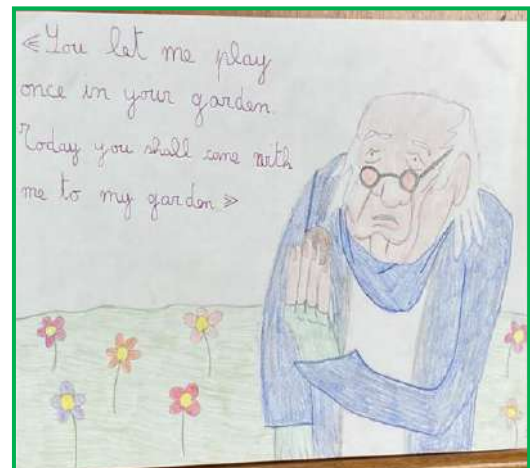 «You let me play
once in your garden.
Today you shall come with
me to my garden»